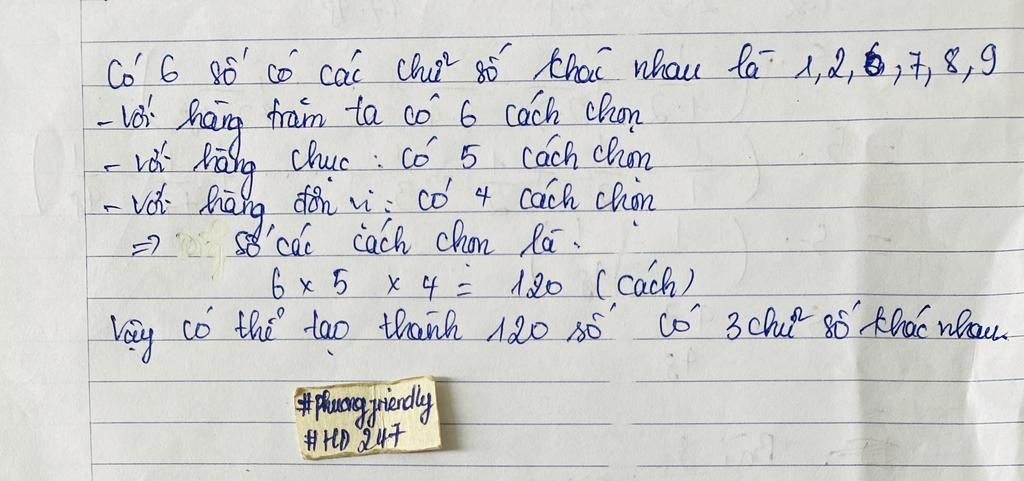 Có 6 số có các chữ số khác nhau là 1, 2, 6, 7, 8, 9
- Với hàng trăm ta có 6 cách chọn
- với hàng chục : có 5 cách chọn
- Với hàng đơn vị : có 4 cách chọn
=> số các cách chọn là :
6 x 5 x 4 = 120 (cách)
Vậy có thể tạo thành 120 số có 3 chữ số khác nhau.
#phuongfriendly
#HD 247